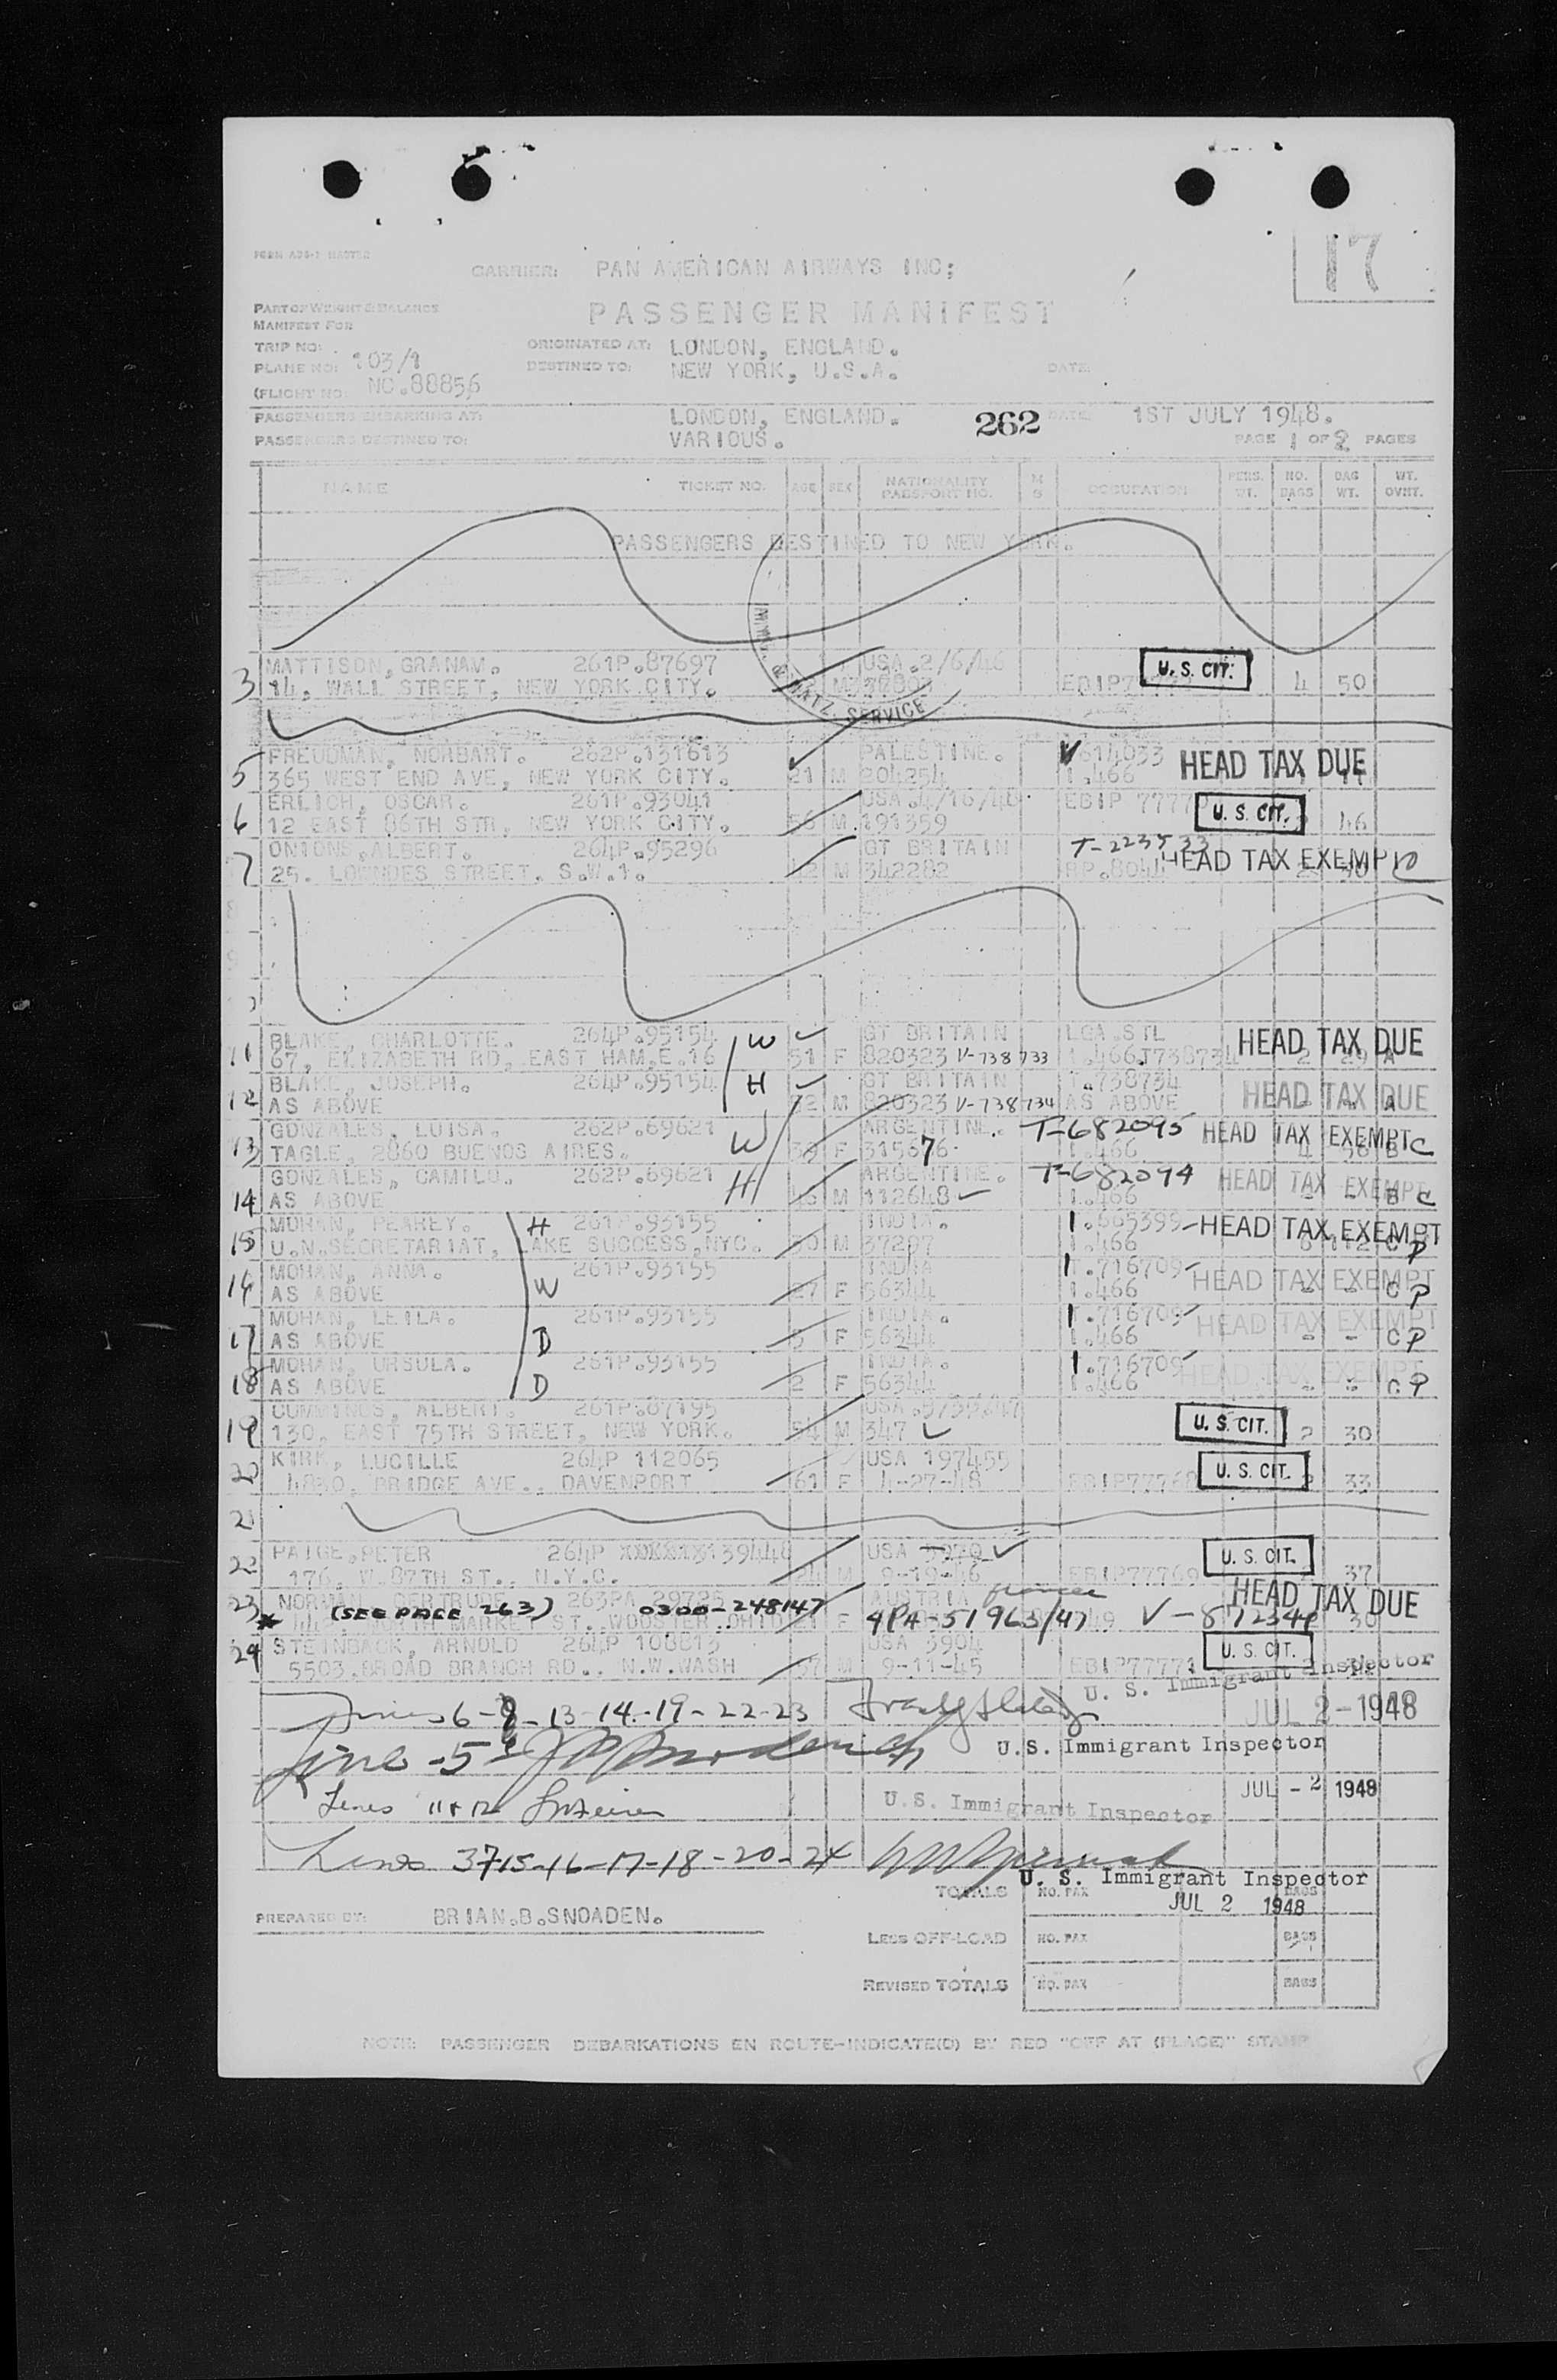 17
CARRIER: PAN AMERICAN AIRWAYS INC;
PART OF WEIGHT & BALANCE
MANIFEST FOR
PASSENGER MANIFEST
TRIP NO: 103/1
ORIGINATED AT: LONDON, ENGLAND.
PLANE NO: NC.88856
DESTINED TO: NEW YORK, U.S.A. DATE:
(FLIGHT NO.
PASSENGERS EMBARKING AT: LONDON, ENGLAND. 262 DATE: 1ST JULY 1948.
PASSENGERS DESTINED TO: VARIOUS. PAGE 1 OF 2 PAGES
NAME TICKET NO. AGE SEX NATIONALITY PASSPORT NO. M S OCCUPATION PERS. WT. NO. BAGS BAG WT. WT. OVHT.
PASSENGERS DESTINED TO NEW YORK.
IMM. & NATZ. SERVICE
3 MATTISON, GRAHAM. 261P.87697 USA.2/6/46 U. S. CIT.
14, WALL STREET, NEW YORK CITY. M 4 50
5 FREUDMAN, NORBART. 262P.131613 PALESTINE. V614033 HEAD TAX DUE
365 WEST END AVE, NEW YORK CITY. 21 M 204254 1.466
6 ERLICH, OSCAR. 261P.93041 USA.4/16/48 EBIP 7777 U. S. CIT.
12 EAST 86TH STR, NEW YORK CITY. 56 M 191359 46
7 ONIONS, ALBERT. 264P.95296 GT BRITAIN T-223533 HEAD TAX EXEMPT
25. LOWNDES STREET. S.W.1. 42 M 342282
8
9
11 BLAKE, CHARLOTTE. 264P.95154 W GT BRITAIN LCA.STL HEAD TAX DUE
67, ELIZABETH RD, EAST HAM.E.16 51 F 820323 V-738733 1.466 T738734 2 29 A
12 BLAKE, JOSEPH. 264P.95154 H GT BRITAIN T.738734 HEAD TAX DUE
AS ABOVE 52 M 820323 V-738734 AS ABOVE - - A
13 GONZALES, LUISA. 262P.69621 W ARGENTINE. T-682095 HEAD TAX EXEMPT C
TAGLE, 2860 BUENOS AIRES. F 315676 1.466 B
14 GONZALES, CAMILO. 262P.69621 H ARGENTINE. T-682094 HEAD TAX EXEMPT
AS ABOVE M 112648 1.466 - - B C
15 MOHAN, PEAREY. H 261P.93155 INDIA. 1.665395 HEAD TAX EXEMPT
U.N.SECRETARIAT, LAKE SUCCESS, NYC. 30 M 37297 1.466 112 C P
16 MOHAN, ANNA. 261P.93155 INDIA 1.716709 HEAD TAX EXEMPT
AS ABOVE W 27 F 56344 1.466 - - C P
17 MOHAN, LEILA. 261P.93155 INDIA. 1.716709 HEAD TAX EXEMPT
AS ABOVE D F 56344 1.466 - - C P
18 MOHAN, URSULA. 261P.93155 INDIA. 1.716709 HEAD TAX EXEMPT
AS ABOVE D 2 F 56344 1.466 - - C P
19 CUMMINGS, ALBERT. 261P.87195 USA U. S. CIT.
130, EAST 75TH STREET, NEW YORK. 54 M 347 2 30
20 KIRK, LUCILLE 264P 112065 USA 197455 U. S. CIT.
4830, BRIDGE AVE., DAVENPORT 61 F 4-27-48 EBIP77768 33
21
22 PAIGE.PETER 264P 139440 USA 3920 U. S. CIT.
176, W.87TH ST., N.Y.C. 24 M 9-19-46 EBIP77769 37
23 GERTRUDE 263PA 29725 AUSTRIA HEAD TAX DUE
* (SEE PAGE 263) 0300-248147 F 4PA-51963/47 V-872349 30
NORTH MARKET ST., WOOSTER, OHIO
24 STEINBACK, ARNOLD 264P 108813 USA 3904 U. S. CIT.
5503.BROAD BRANCH RD., N.W.WASH 57 M 9-11-45 EBIP77771
U. S. Immigrant Inspector
Lines 6-8-13-14-19-22-23 JUL 2-1948
Line -5 U.S. Immigrant Inspector
JUL -2 1948
Lines 11 & 12 U.S. Immigrant Inspector
Lines 3-7-15-16-17-18-20-24
U. S. Immigrant Inspector
TOTALS NO. PAX BAGS
JUL 2 1948
PREPARED BY: BRIAN.B.SNOADEN.
LESS OFF-LOAD NO. PAX BAGS
REVISED TOTALS NO. PAX BAGS
NOTE: PASSENGER DEBARKATIONS EN ROUTE-INDICATE(D) BY RED "OFF AT (PLACE)" STAMP